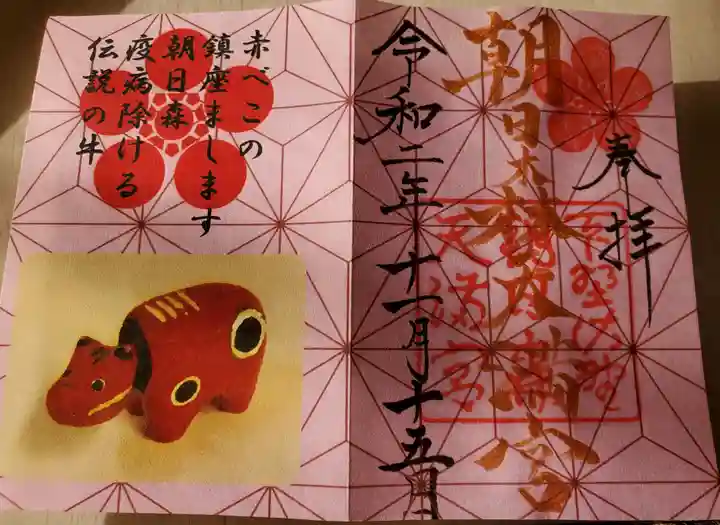 奉拝
朝日森天満宮
天満宮
令和二年十一月十五日
赤べこの
鎮座まします
朝日森
疫病除ける
伝説の牛